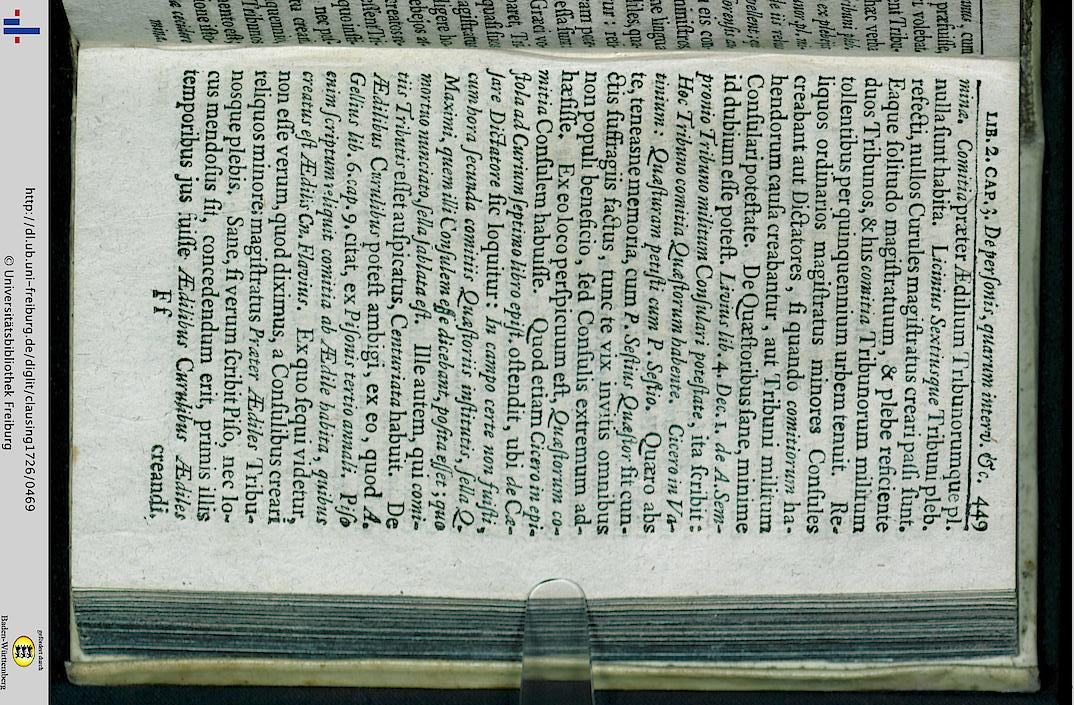 LIB. 2. CAP. 3. De personis, quarum interv. &c. 449
minæ. Comitia præter Ædilium Tribunorumque pl.
nulla sunt habita. Licinius Sextiusque Tribuni pleb.
refecti, nullos Curules magistratus creari passi sunt.
Eaque solitudo magistratuum, & plebe reficiente
duos Tribunos, & his comitia Tribunorum militum
tollentibus per quinquennium urbem tenuit. Re-
liquos ordinarios magistratus minores Consules
creabant aut Dictatores, si quando comitiorum ha-
bendorum causa creabantur, aut Tribuni militum
Consulari potestate. De Quæstoribus sane, minime
id dubium esse potest. Livius lib. 4. Dec. 1. de A Sem-
pronio Tribuno militum Consulari potestate, ita scribit:
Hoc Tribuno comitia Quæstorum habente. Cicero in Va-
tinium: Quæsturam petisti cum P. Sestio. Quæro abs
te, teneasne memoria, cum P. Sestius Quæstor sit cun-
ctis suffragiis factus, tunc te vix invitis omnibus
non populi beneficio, sed Consulis extremum ad-
hæsisse. Ex eo loco perspicuum est, Quæstorum co-
mitia Consulem habuisse. Quod etiam Cicero in epi-
stola ad Curium septimo libro epist. ostendit, ubi de Cæ-
sare Dictatore sic loquitur: In campo certe non fuisti,
cum hora secunda comitiis Quæstoriis institutis, sella Q.
Maximi, quem illi Consulem esse dicebant, posita esset; quo
mortuo nunciato, sella sublata est. Ille autem, qui comi-
tiis Tributis esset auspicatus, Centuriata habuit. De
Ædilibus Curulibus potest ambigi, ex eo, quod A.
Gellius lib. 6. cap. 9. citat, ex Pisonis tertio annali. Piso
enim scriptum reliquit comitia ab Ædile habita, quibus
creatus est Ædilis Cn. Flavius. Ex quo sequi videtur,
non esse verum, quod diximus, a Consulibus creari
reliquos minores magistratus Præter Ædiles Tribu-
nosque plebis. Sane, si verum scribit Piso, nec lo-
cus mendosus sit, concedendum erit, primis illis
temporibus jus fuisse Ædilibus Curulibus Ædiles
Ff creandi,
http://dl.ub.uni-freiburg.de/diglit/clausing1726/0469
© Universitätsbibliothek Freiburg
gefördert durch
Baden-Württemberg